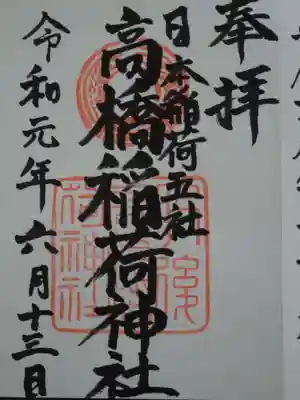 奉拝
日本稲荷五社
高橋稲荷神社
令和元年六月十三日